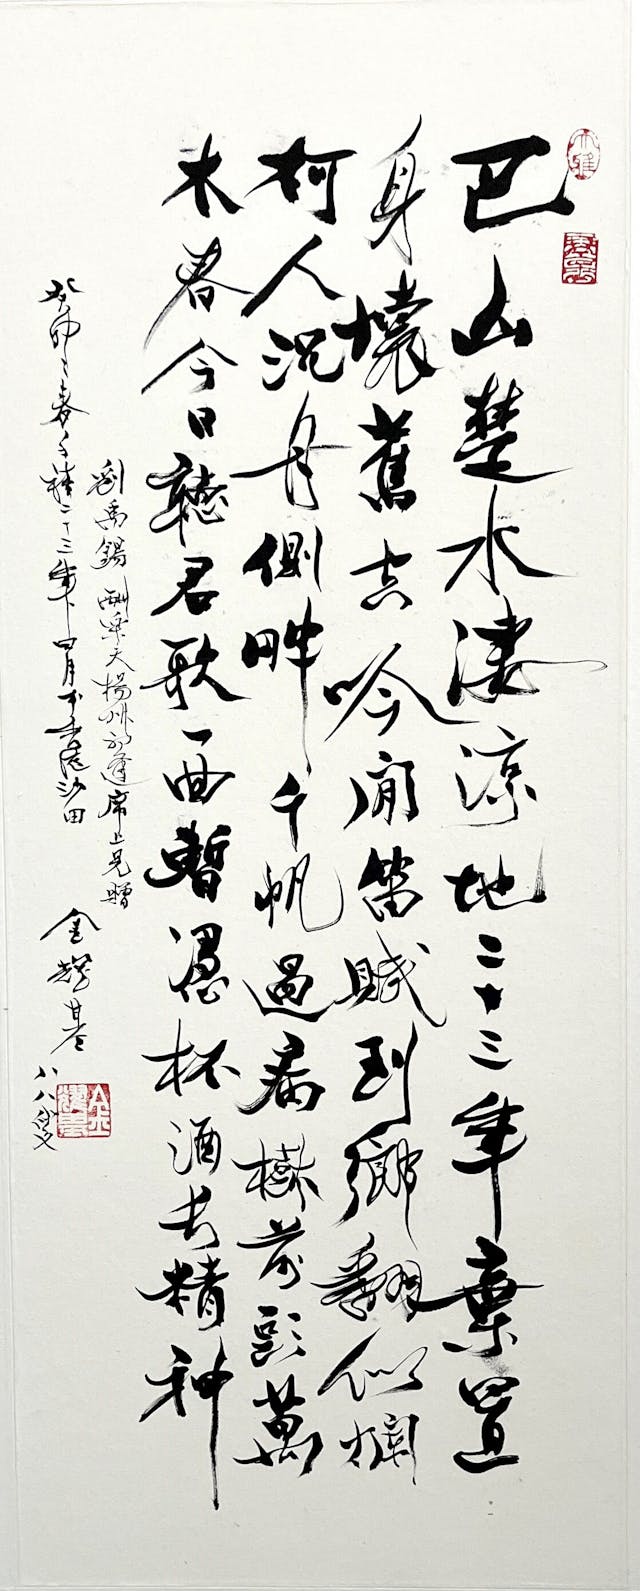 巴山楚水淒涼地二十三年棄置
身懷舊空吟聞笛賦到鄉翻似爛
柯人沉舟側畔千帆過病樹前頭萬
木春今日聽君歌一曲暫憑杯酒長精神
劉禹錫 酬樂天揚州初逢席上見贈
癸卯之春二十三年四月于香港沙田
金耀基 八八叟
大雅
金耀基